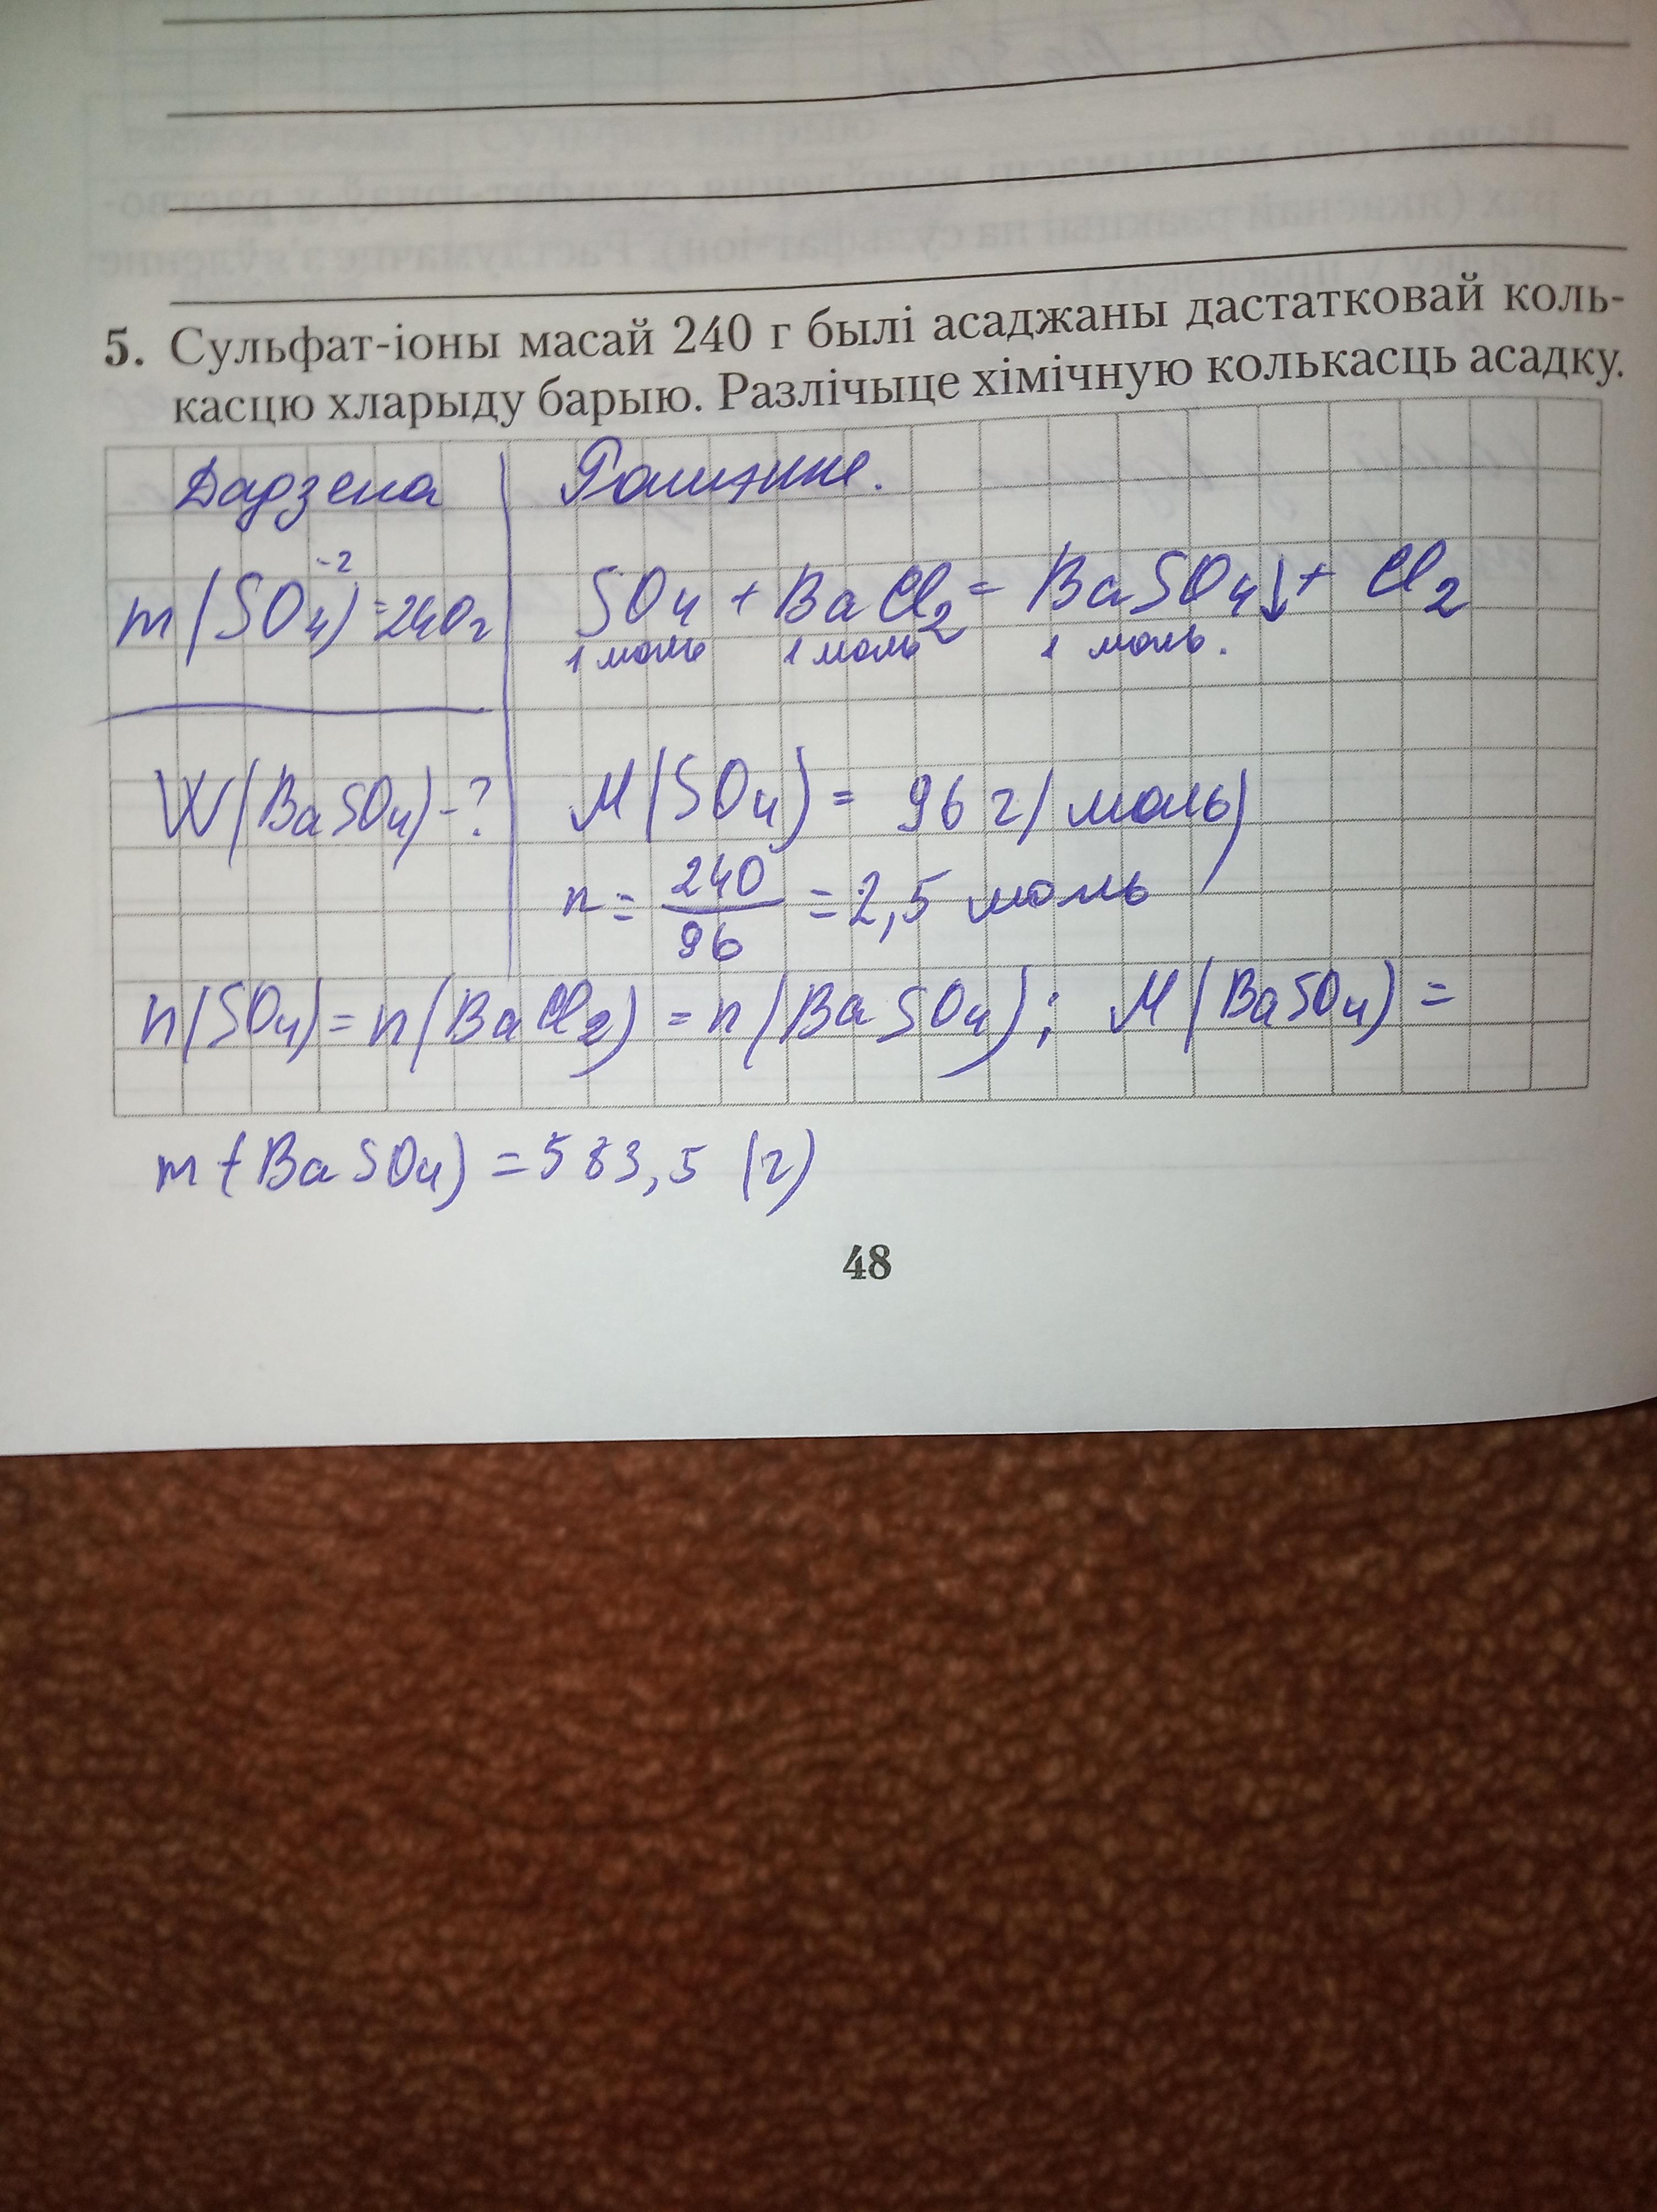 5. Сульфат-іоны масай 240 г былі асаджаны дастатковай коль-
касцю хларыду барыю. Разлічыце хімічную колькасць асадку.
Дадзена Рашэнне.
m(SO₄)⁻² = 240г SO₄ + BaCl₂ = BaSO₄↓ + Cl₂
1 моль 1 моль 1 моль.
W(BaSO₄) - ? M(SO₄) = 96 г/моль)
n = 240/96 = 2,5 моль
n(SO₄) = n(BaCl₂) = n(BaSO₄); M(BaSO₄) =
m(BaSO₄) = 583,5 (г)
48